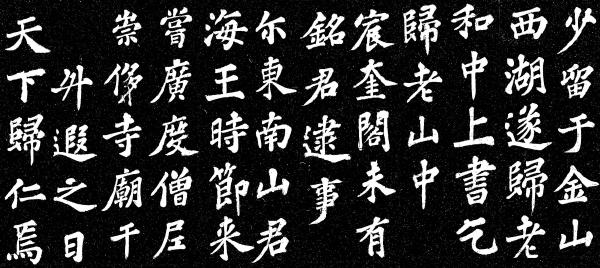 少留于金山
西湖遂歸老
和中上書乞
歸老山中
宸奎閣未有
銘君逮事
尓東南山君
海王時節来
嘗廣度僧尼
崇侈寺廟干
升遐之日
天下歸仁焉